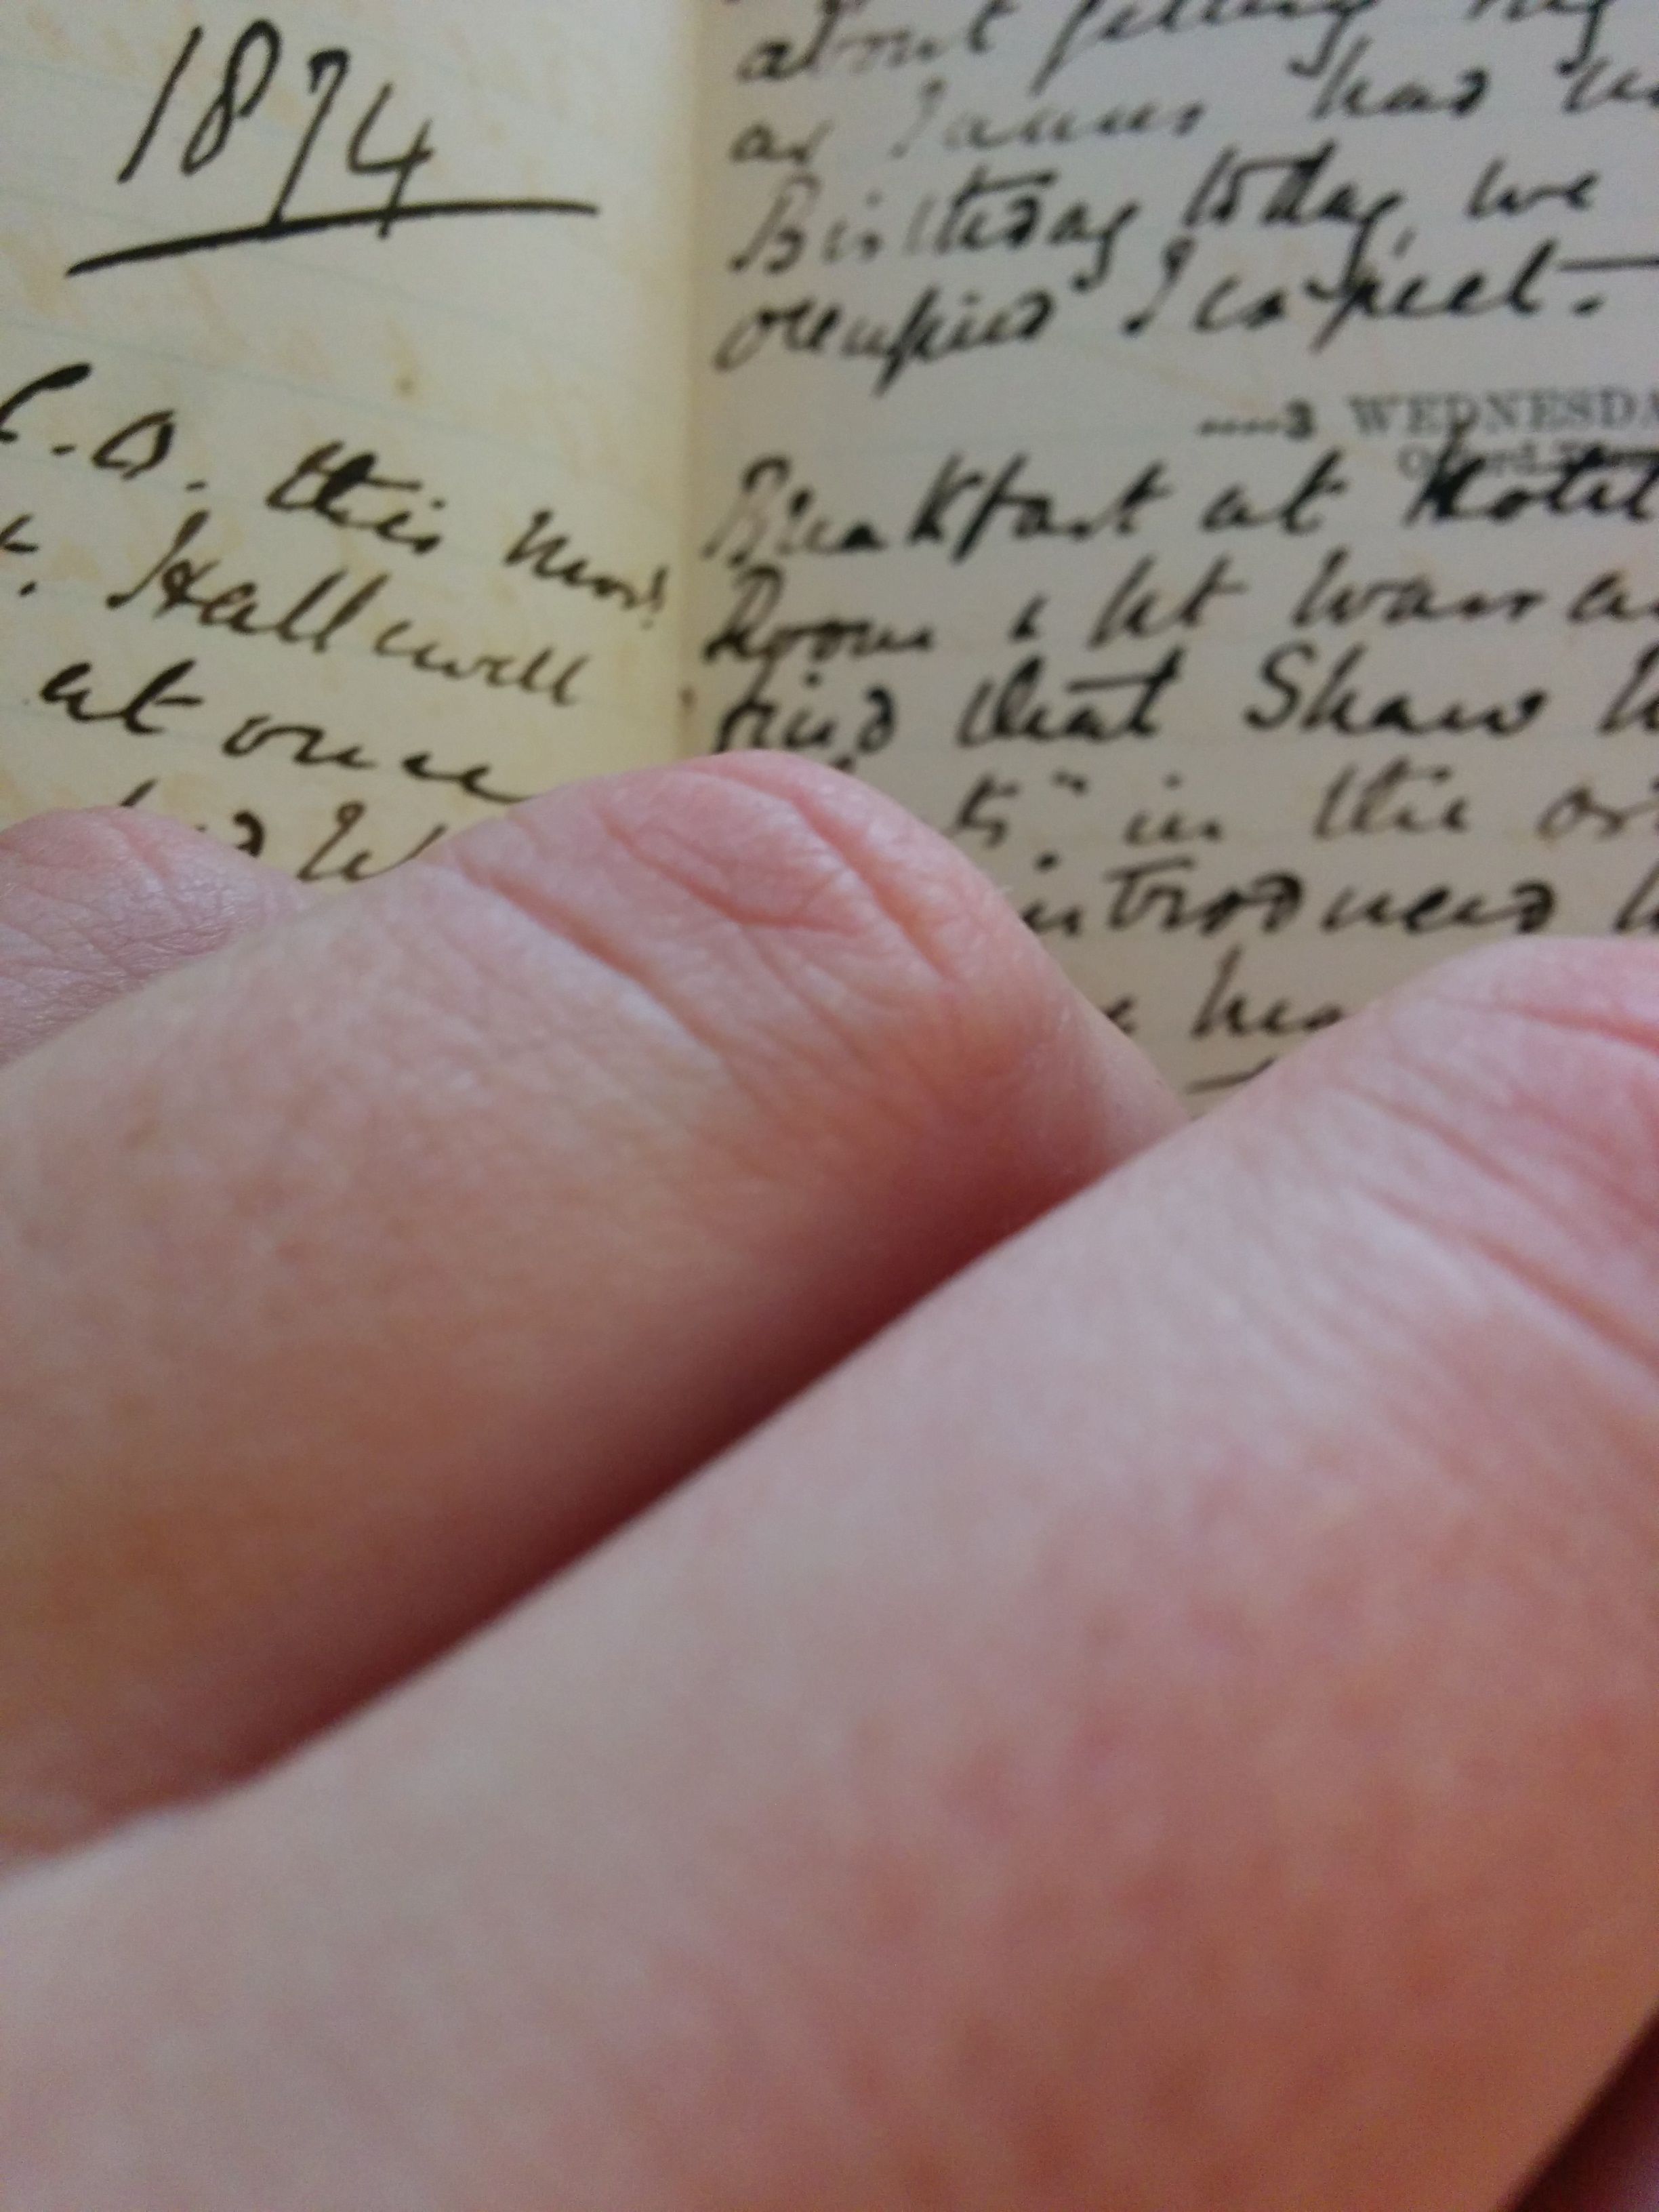 1874
C.O. this morn!
Hallwell
at once
about getting
as James had
Birthday today, we
occupied I expect. —
3 WEDNESDA
Breakfast at Hotel
Room & let
find that Shaw
in the
introduced